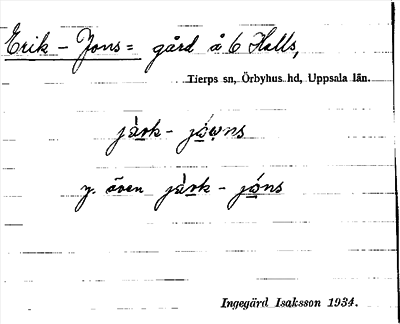 Erik-Jons= gård å 6 Halls,
Tierps sn, Örbyhus hd, Uppsala län.
järk- jówns
y. även järk- jóns
Ingegärd Isaksson 1934.